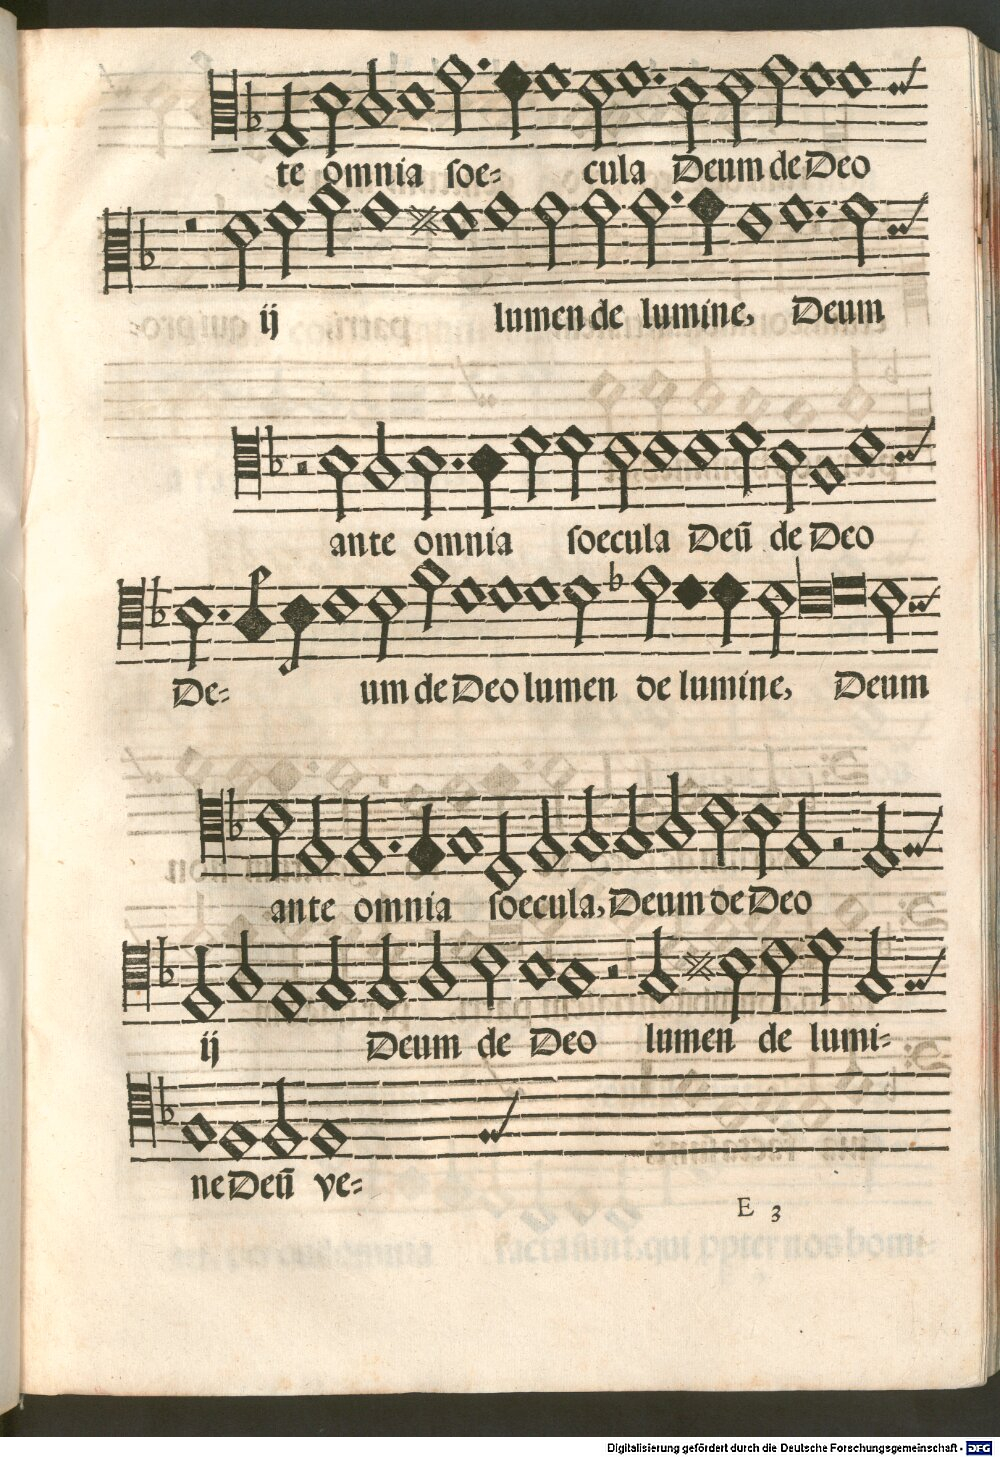 te omnia soe= cula Deum de Deo
ij lumen de lumine, Deum
ante omnia soecula Deū de Deo
De= um de Deo lumen de lumine, Deum
ante omnia soecula, Deum de Deo
ij Deum de Deo lumen de lumi=
ne Deū ve=
E 3
Digitalisierung gefördert durch die Deutsche Forschungsgemeinschaft - DFG